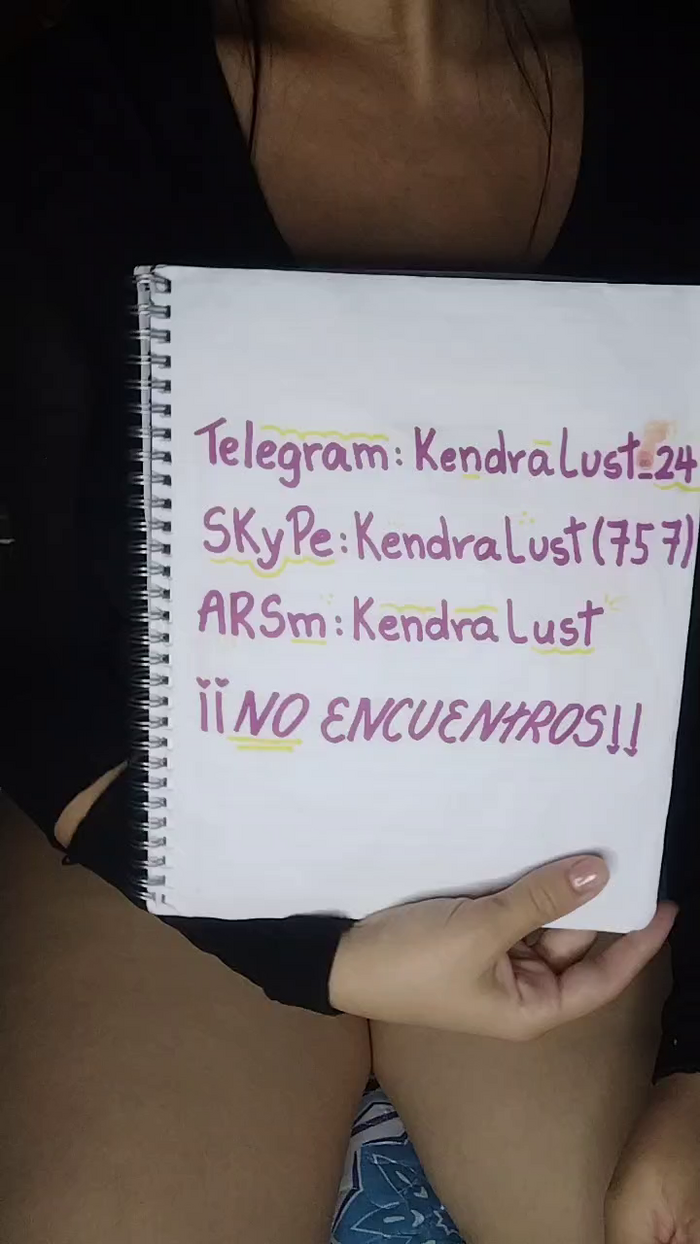 Telegram: KendraLust_24
SKyPe: KendraLust (757)
ARSm: KendraLust
¡¡NO ENCUENtROS!!